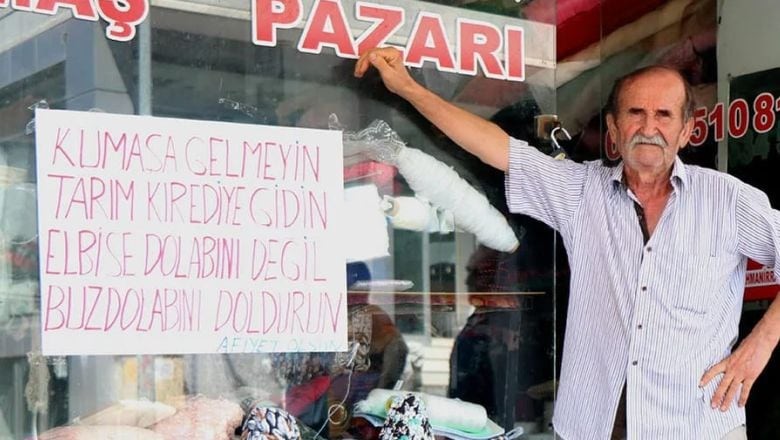 PAZARI
510 8
KUMAŞA GELMEYİN
TARIM KIREDİYE GİDİN
ELBİSE DOLABINI DEĞİL
BUZDOLABINI DOLDURUN
AFİYET OLSUN